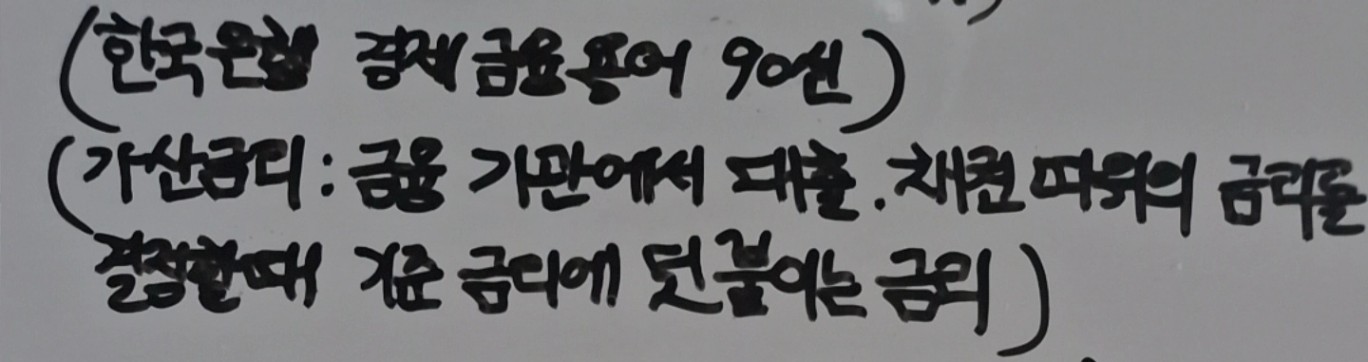 (한국은행 경제금융용어 90선)
(가산금리: 금융 기관에서 대출. 채권 따위의 금리를
결정할때 기준 금리에 덧붙이는 금리)